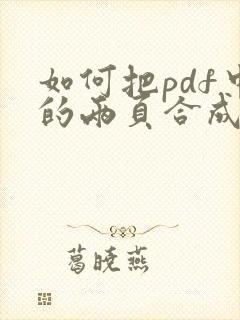 如何把pdf中
的两页合成
葛晓燕